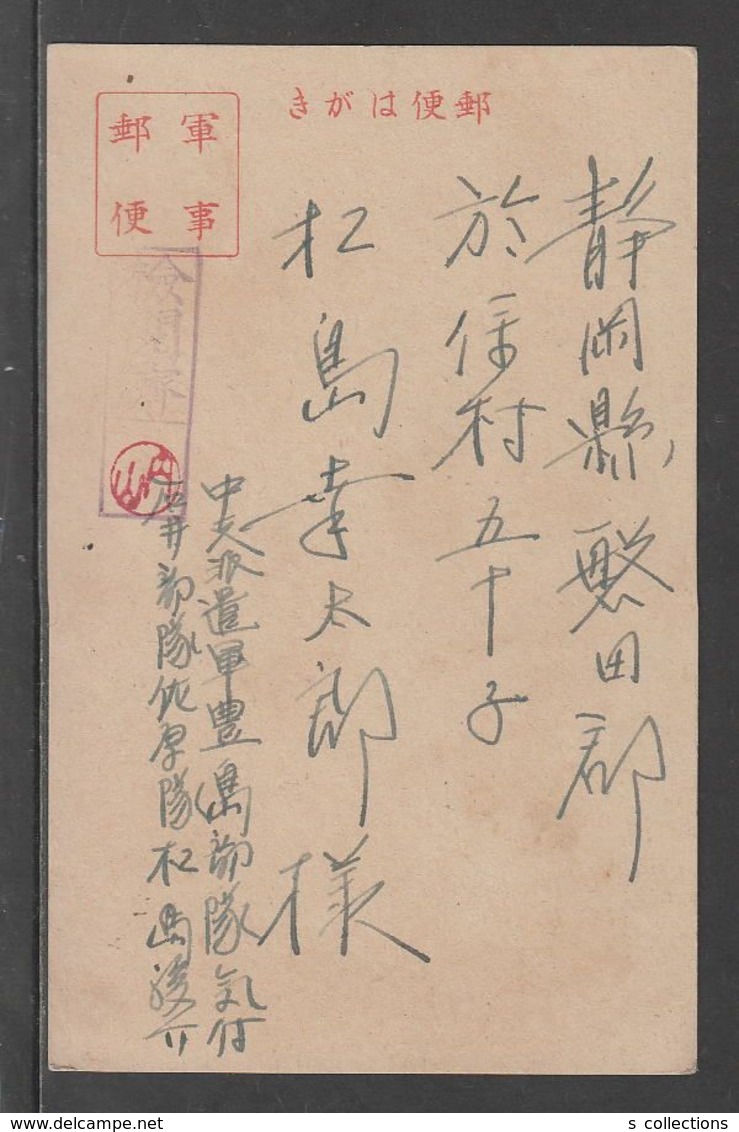 郵便はがき
軍事
郵便
静岡縣磐田郡
於保村五十子
松島幸太郎様
検閲済
中支派遣軍豊島部隊気付
石井部隊佐原隊松島
s collections